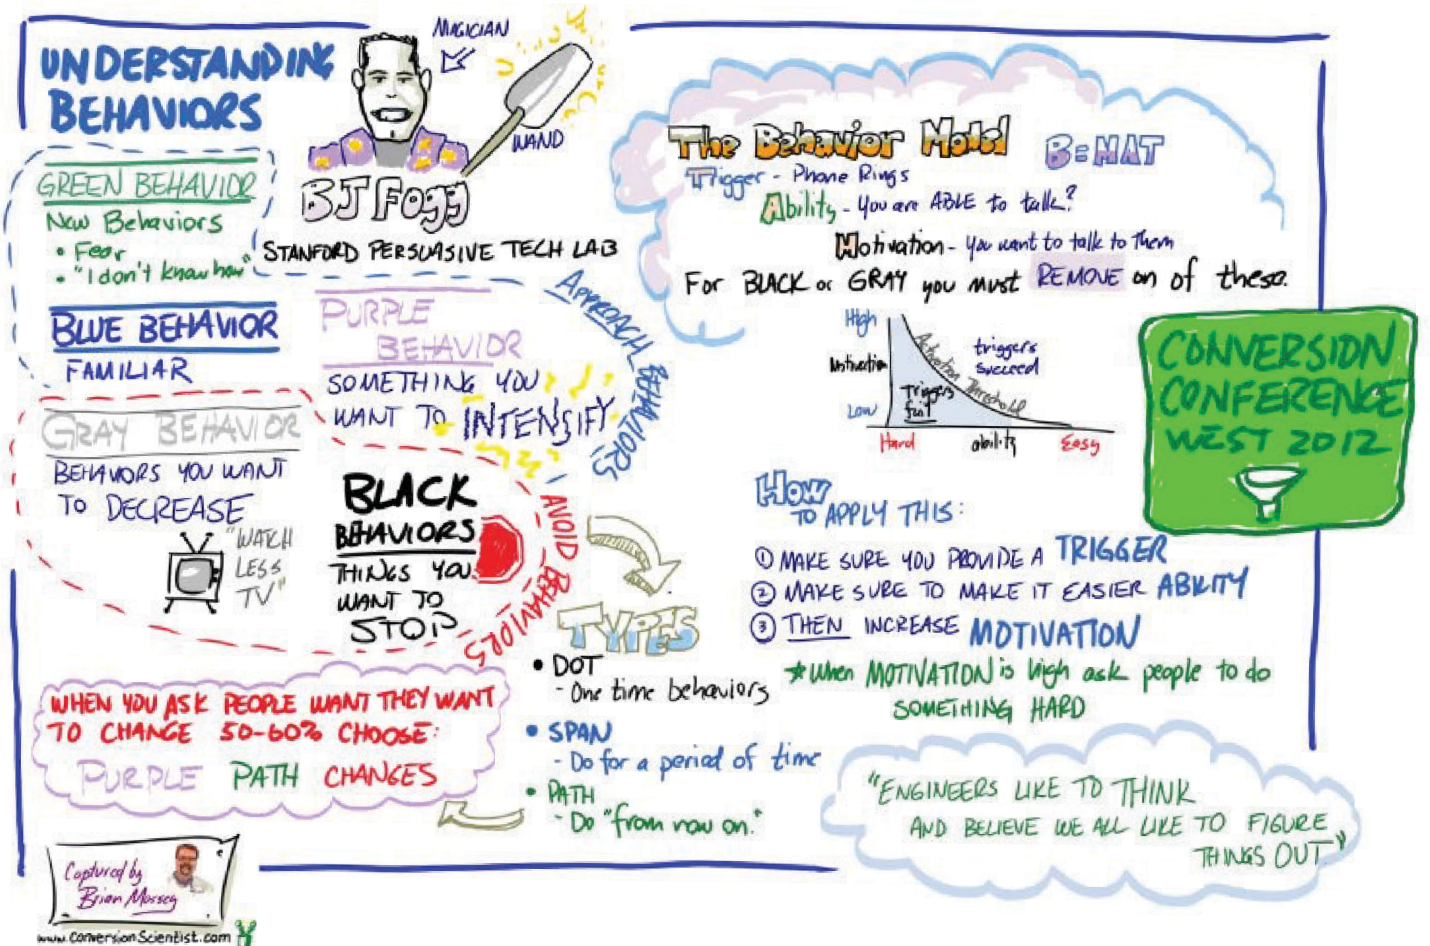 UNDERSTANDING
BEHAVIORS
MAGICIAN
WAND
BJ Fogg
STANFORD PERSUASIVE TECH LAB
GREEN BEHAVIOR
New Behaviors
• Fear
• "I don't know how"
BLUE BEHAVIOR
FAMILIAR
PURPLE
BEHAVIOR
SOMETHING YOU
WANT TO INTENSIFY
APPROACH BEHAVIORS
GRAY BEHAVIOR
BEHAVIORS YOU WANT
TO DECREASE
"WATCH
LESS
TV"
BLACK
BEHAVIORS
THINGS YOU
WANT TO
STOP
AVOID BEHAVIORS
WHEN YOU ASK PEOPLE WANT THEY WANT
TO CHANGE 50-60% CHOOSE:
PURPLE PATH CHANGES
TYPES
• DOT
- One time behaviors
• SPAN
- Do for a period of time
• PATH
- Do "from now on."
The Behavior Model B=MAT
Trigger - Phone Rings
Ability - You are ABLE to talk?
Motivation - You want to talk to them
For BLACK or GRAY you must REMOVE on of these.
High
Motivation
Low
Activation Threshold
triggers
succeed
Triggers
fail
Hard
ability
Easy
CONVERSION
CONFERENCE
WEST 2012
HOW
TO APPLY THIS:
① MAKE SURE YOU PROVIDE A TRIGGER
② MAKE SURE TO MAKE IT EASIER ABILITY
③ THEN INCREASE MOTIVATION
* When MOTIVATION is high ask people to do
SOMETHING HARD
"ENGINEERS LIKE TO THINK
AND BELIEVE WE ALL LIKE TO FIGURE
THINGS OUT"
Captured by
Brian Massey
www.ConversionScientist.com